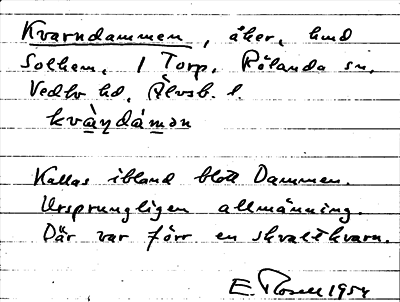 Kvarndammen, åker, hmd
Solhem, 1 Torp, Rölanda sn,
Vedbo hd, Älvsb. l.
kvàndámən
Kallas ibland blott Dammen.
Ursprungligen allmänning.
Där var förr en skvaltkvarn.
E. Rosell 1954